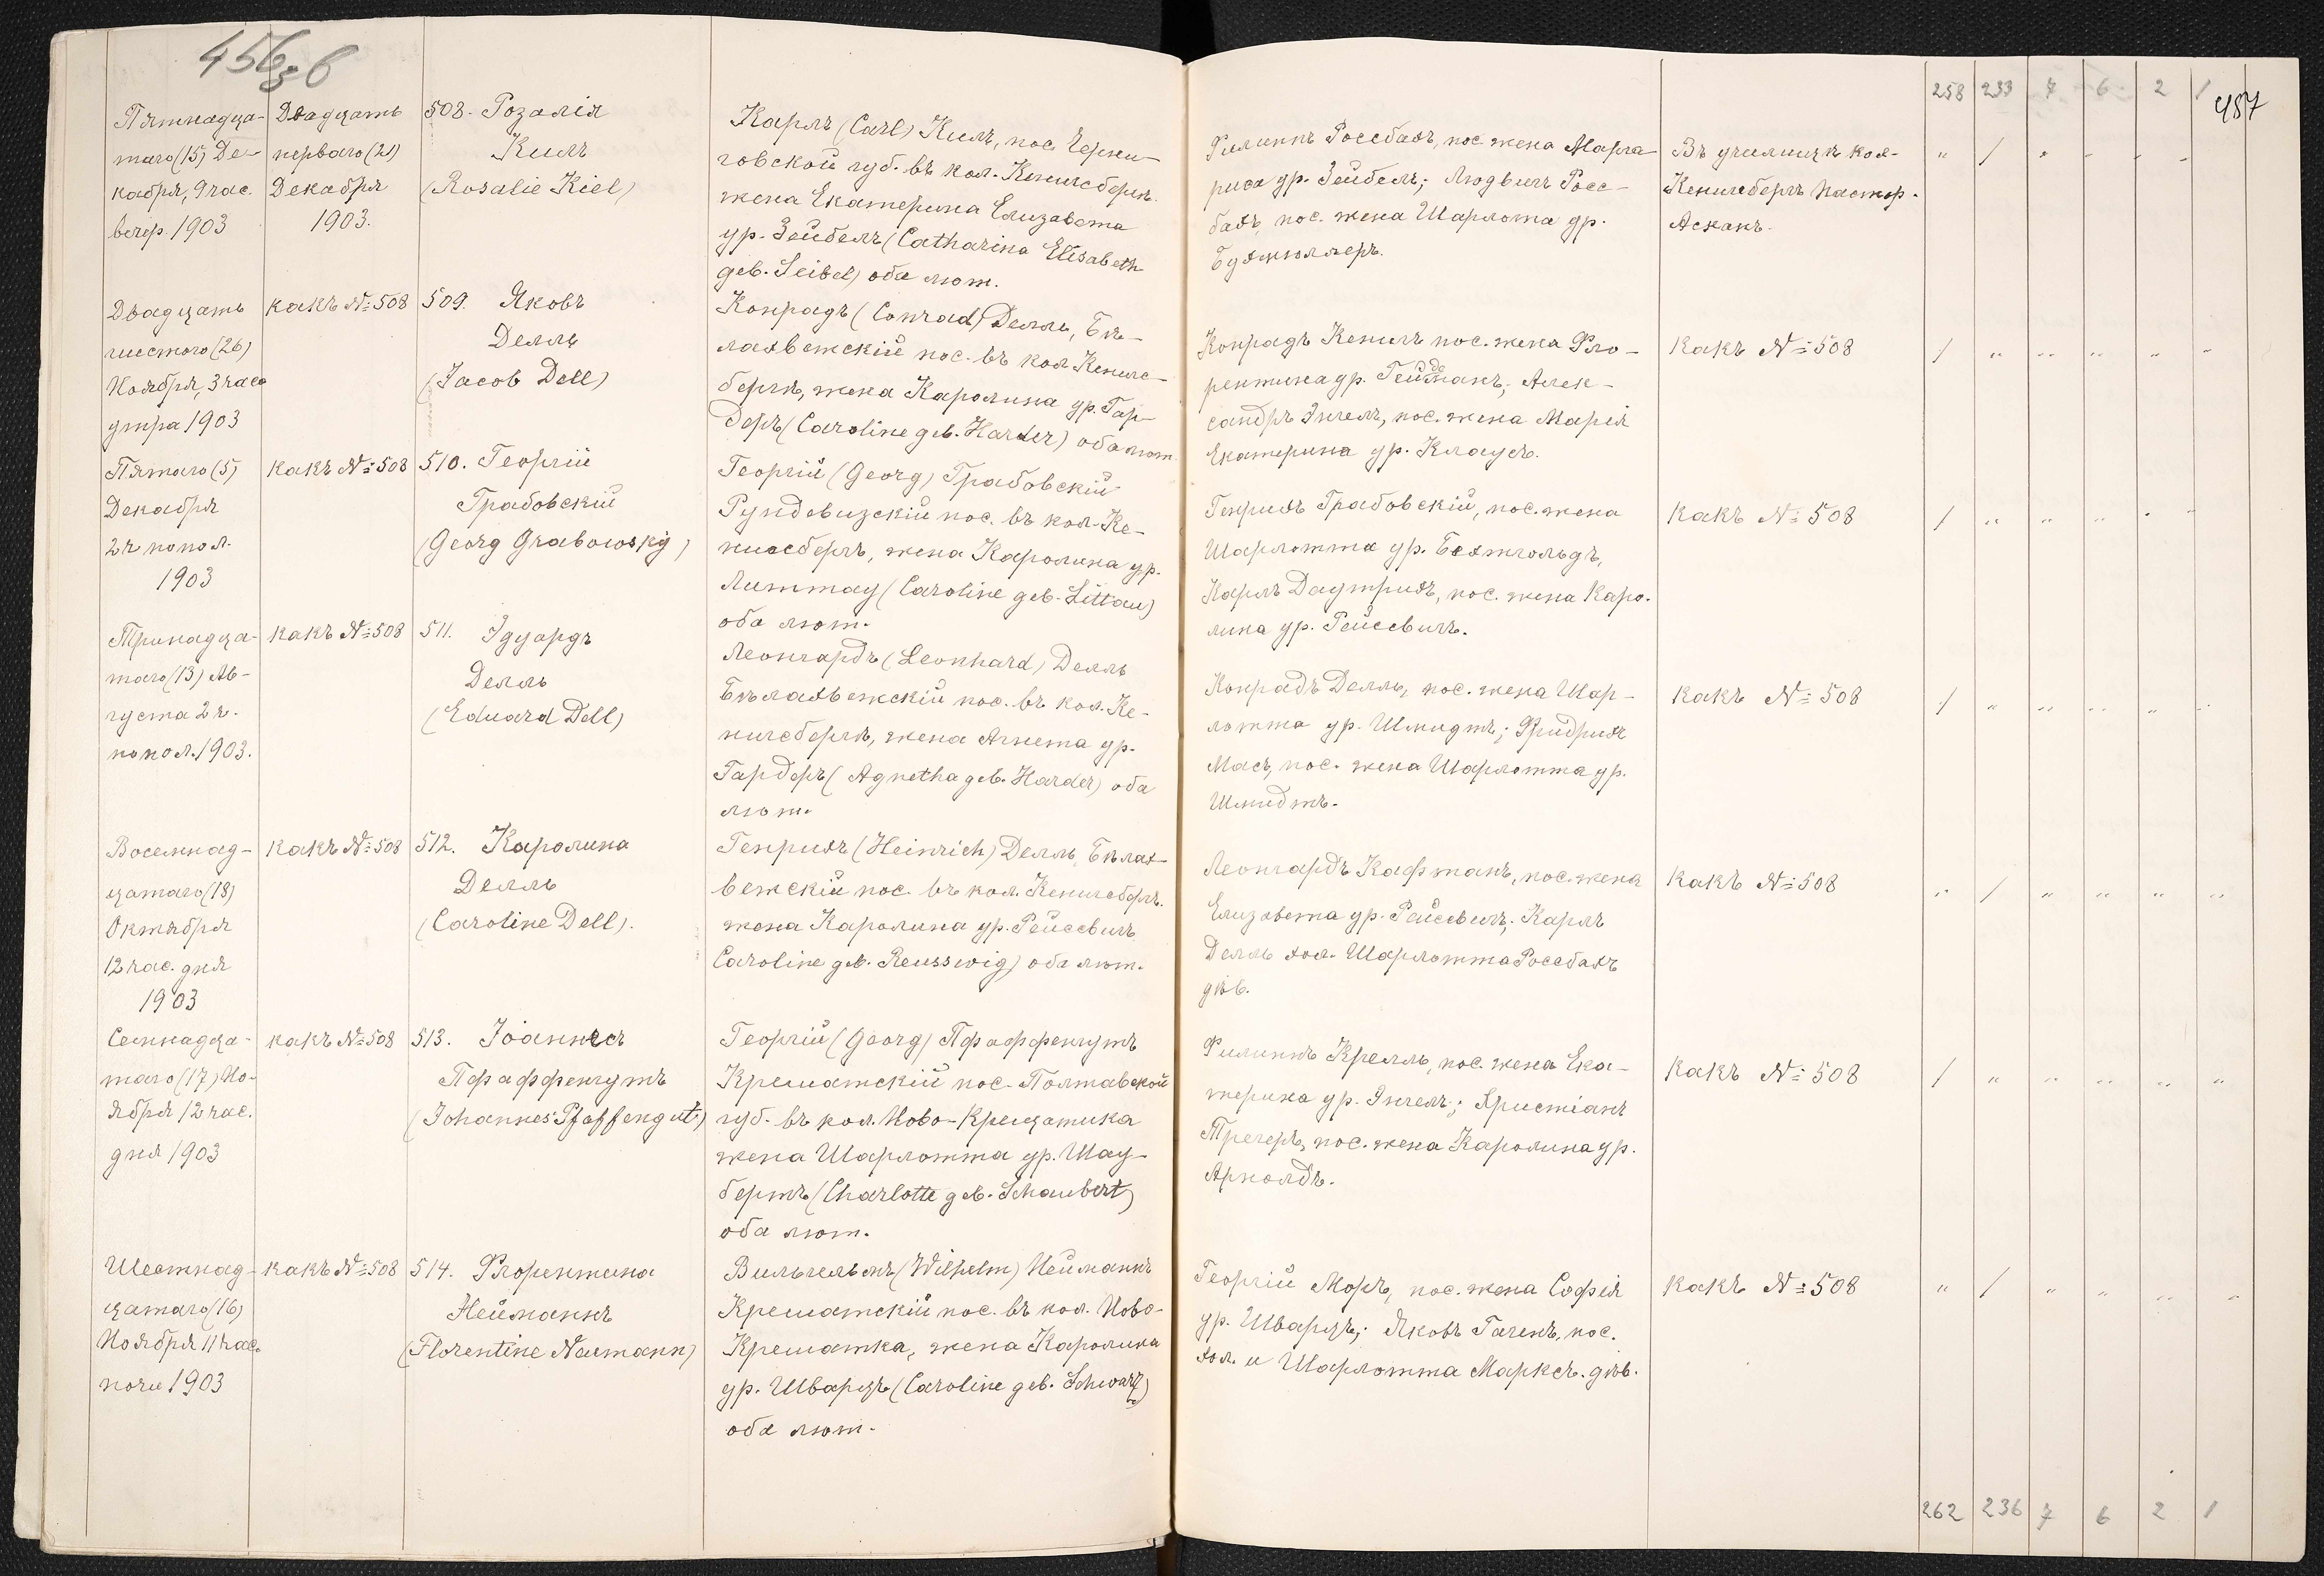 456 зб
258 233 7 6 2 1
457
Пятнадца-
таго (15) Де-
кабря, 9 час.
вечер. 1903
Двадцать
перваго (21)
Декабря
1903.
508. Розалія
Киль
(Rosalie Kiel)
Карлъ (Carl) Киль, пос. Черни-
говской губ. въ кол. Кенигсбергѣ.
жена Екатерина Елизавета
ур. Зейбель (Catharina Elisabeth
geb. Seibel) оба лют.
Филиппъ Россбахъ, пос. жена Марга-
риса ур. Зейбель; Людвигъ Росс-
бахъ, пос. жена Шарлота ур.
Бухмюллеръ.
Въ училищѣ кол-
Кенигсбергъ Пастор.
Асханъ.
" / " - - -
Двадцать
шестого (26)
Ноября, 3 часа
утра 1903
какъ №508
509. Яковъ
Делль
(Jacob Dell)
Конрадъ (Conrad) Делль, Бѣ-
лахвежскій пос. въ кол. Кенигс-
бергѣ, жена Каролина ур. Гар-
деръ (Caroline geb. Harder) оба лют.
Конрадъ Кенигъ пос. жена Фло-
рентина ур. Гейманъ; Алек-
сандръ Энгель, пос. жена Марія
Екатерина ур. Клаусъ.
какъ № 508
/ " " " " "
Пятаго (5)
Декабря
2 ч. попол.
1903
какъ №508
510. Георгій
Грабовскій
(Georg Grabowsky)
Георгій (Georg) Грабовскій
Рундевизскій пос. въ кол. Ке-
нигсбергъ, жена Каролина ур.
Литтау (Caroline geb. Littau)
оба лют.
Генрихъ Грабовскій, пос. жена
Шарлотта ур. Бехтгольдъ,
Карлъ Даутрихъ, пос. жена Каро-
лина ур. Рейссвигъ.
какъ № 508
/ " " " " "
Тринадца-
таго (13) Ав-
густа 2 ч.
попол. 1903.
какъ №508
511. Эдуардъ
Делль
(Eduard Dell)
Леонгардъ (Leonhard) Делль
Бѣлахвежскій пос. въ кол. Ке-
нигсбергѣ, жена Агнета ур.
Гардеръ (Agnetha geb. Harder) оба
лют.
Конрадъ Делль, пос. жена Шар-
лотта ур. Шмидтъ; Фридрихъ
Масъ, пос. жена Шарлотта ур.
Шмидтъ.
какъ № 508
/ " " " " "
Восемнад-
цатаго (18)
Октября
12 час. дня
1903
какъ №508
512. Каролина
Делль
(Caroline Dell).
Генрихъ (Heinrich) Делль, Бѣлах-
вежскій пос. въ кол. Кенигсбергъ.
жена Каролина ур. Рейссвигъ
Caroline geb. Reusswig) оба лют.
Леонгардъ Кафтанъ, пос. жена
Елизавета ур. Рейссвигъ; Карлъ
Делль хол. Шарлотта Россбахъ
дѣв.
какъ № 508
" / " " " "
Семнадца-
таго (17) Но-
ября 12 час.
дня 1903
какъ №508
513. Іоаннесъ
Пфаффенгутъ
(Johannes Pfaffengut)
Георгій (Georg) Пфаффенгутъ
Крешатскій пос. Полтавской
губ. въ кол. Ново-Крещатика
жена Шарлотта ур. Шау-
бертъ (Charlotte geb. Schaubert)
оба лют.
Филиппъ Крелль, пос. жена Ека-
терина ур. Энгель; Христіанъ
Трегеръ, пос. жена Каролина ур.
Арнолдъ.
какъ № 508
/ " " " " "
Шестнад-
цатаго (16)
Ноября 11 час.
ночи 1903
какъ №508
514. Флорентина
Нейманнъ
(Florentine Naumann)
Вильгельмъ (Wilhelm) Нейманнъ
Крешатскій пос. въ кол. Ново-
Крешатка, жена Каролина
ур. Шварцъ (Caroline geb. Schwarz)
оба лют.
Георгій Моръ, пос. жена Софія
ур. Шварцъ; Яковъ Гагенъ, пос.
хол. и Шарлотта Марксъ. дѣв.
какъ № 508
" / " " " "
262 236 7 6 2 1